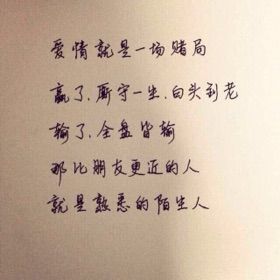 爱情就是一场赌局
赢了，厮守一生，白头到老
输了，全盘皆输
那比朋友更近的人
就是熟悉的陌生人